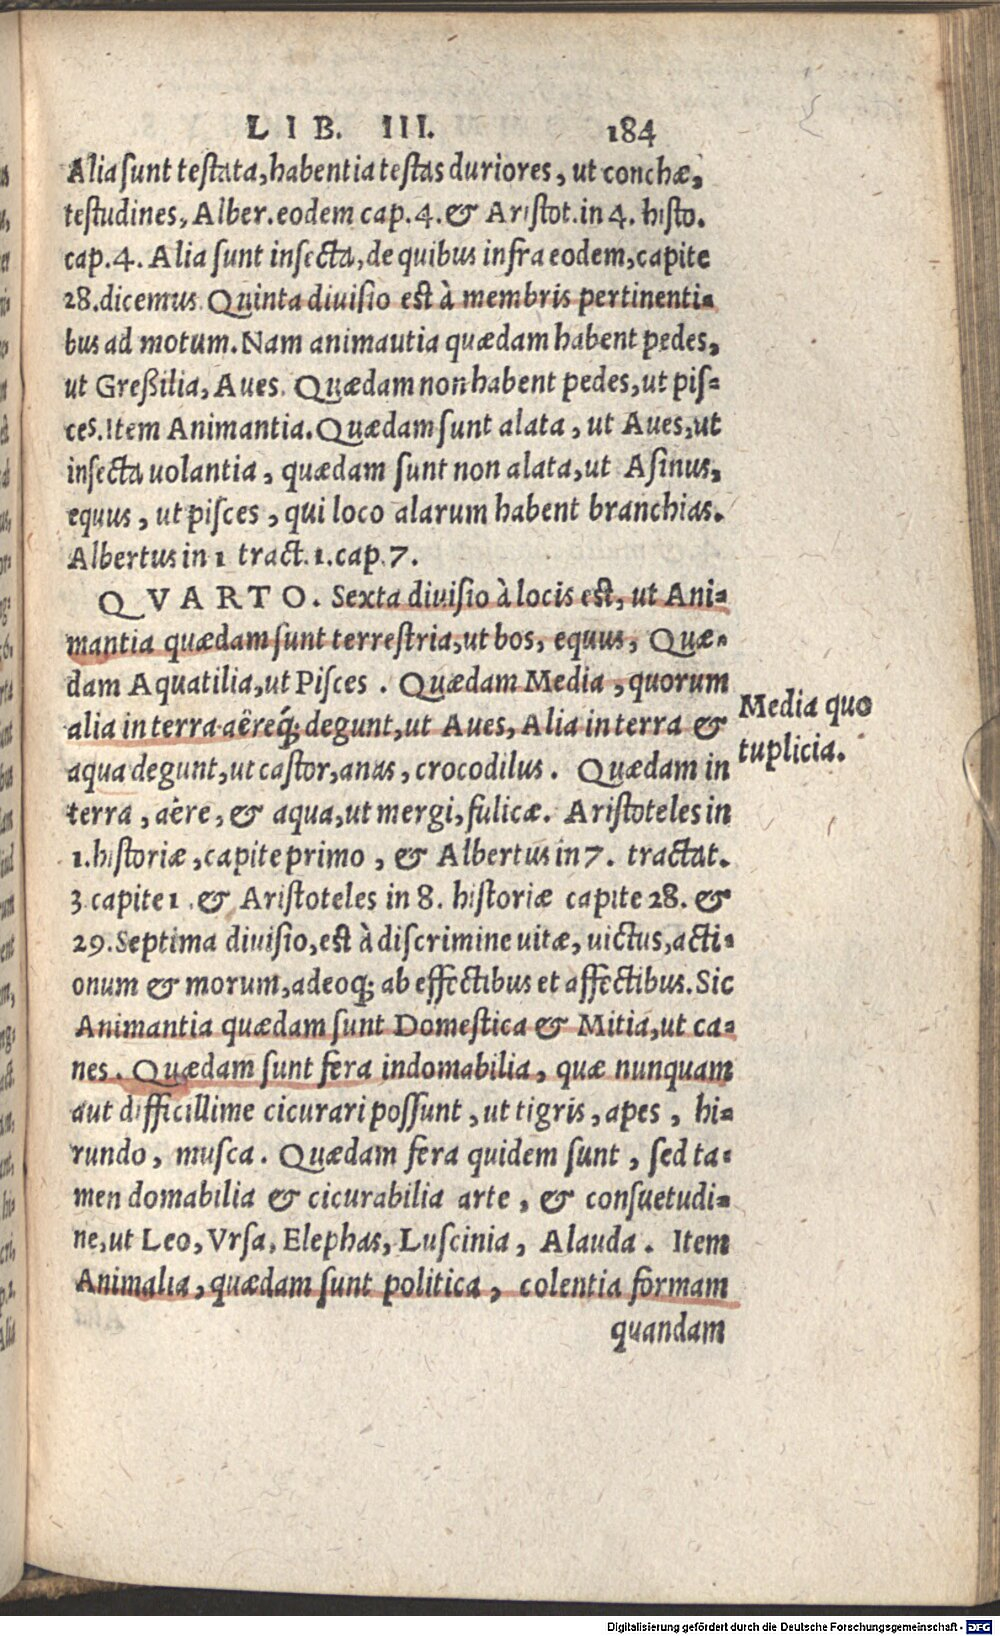 LIB. III. 184
Alia sunt testata, habentia testas duriores, ut conchæ,
testudines, Alber. eodem cap. 4. & Aristot. in 4. histo.
cap. 4. Alia sunt insecta, de quibus infra eodem, capite
28. dicemus. Quinta diuisio est à membris pertinenti=
bus ad motum. Nam animautia quædam habent pedes,
ut Greßilia, Aues. Quædam non habent pedes, ut pis=
ces. Item Animantia. Quædam sunt alata, ut Aues, ut
insecta uolantia, quædam sunt non alata, ut Asinus,
equus, ut pisces, qui loco alarum habent branchias.
Albertus in 1 tract. 1. cap. 7.
QVARTO. Sexta diuisio à locis est, ut Ani=
mantia quædam sunt terrestria, ut bos, equus, Quæ=
dam Aquatilia, ut Pisces. Quædam Media, quorum
alia in terra aëreq́; degunt, ut Aues, Alia in terra &
aqua degunt, ut castor, anas, crocodilus. Quædam in
terra, aëre, & aqua, ut mergi, fulicæ. Aristoteles in
1. historiæ, capite primo, & Albertus in 7. tractat.
3 capite 1. & Aristoteles in 8. historiæ capite 28. &
29. Septima diuisio, est à discrimine uitæ, uictus, acti=
onum & morum, adeoq; ab effectibus et affectibus. Sic
Animantia quædam sunt Domestica & Mitia, ut ca=
nes. Quædam sunt fera indomabilia, quæ nunquam
aut difficillime cicurari possunt, ut tigris, apes, hi=
rundo, musca. Quædam fera quidem sunt, sed ta=
men domabilia & cicurabilia arte, & consuetudi=
ne, ut Leo, Vrsa, Elephas, Luscinia, Alauda. Item
Animalia, quædam sunt politica, colentia formam
quandam
Media quo
tuplicia.
Digitalisierung gefördert durch die Deutsche Forschungsgemeinschaft - DFG